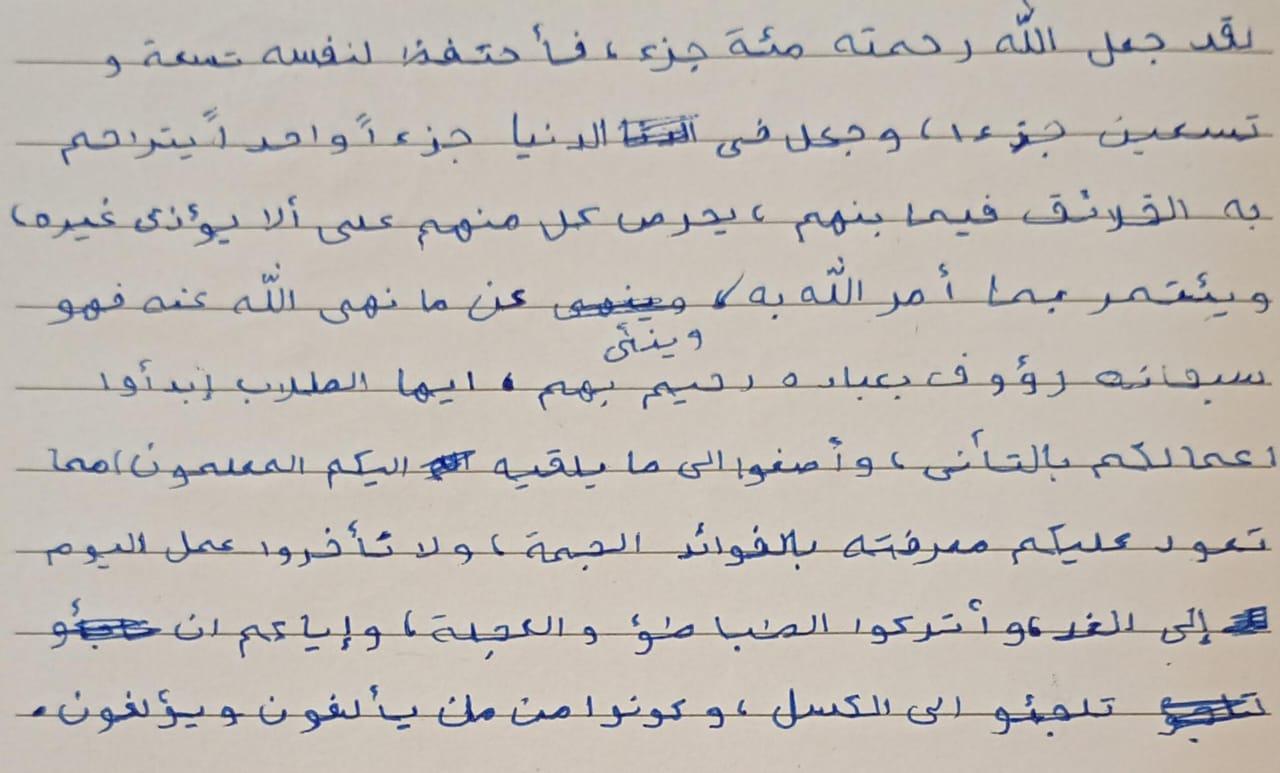 لقد جعل الله رحمته مئة جزء، فأحتفظ لنفسه تسعة و
تسعين جزءا، وجعل في الدنيا جزءاً واحداً يتراحم
به الخلائق فيما بنهم، يحرص كل منهم على ألا يؤذى غيره،
ويئتمر بما أمر الله به، عن ما نهى الله عنه فهو
وينئى
سبحانه رؤوف بعباده رحيم بهم، ايها الطلاب إبدأوا
اعمالكم بالتأنى، وأصغوا الى ما يلقيه اليكم المعلمون، مما
تعود عليكم معرفته بالفوائد الجمة، ولا تأخروا عمل اليوم
إلى الغد، وأتركوا الطباطؤ والعجلة، وإياكم ان
تلجئو الى الكسل، وكونوا من من يألفون ويؤلفون.